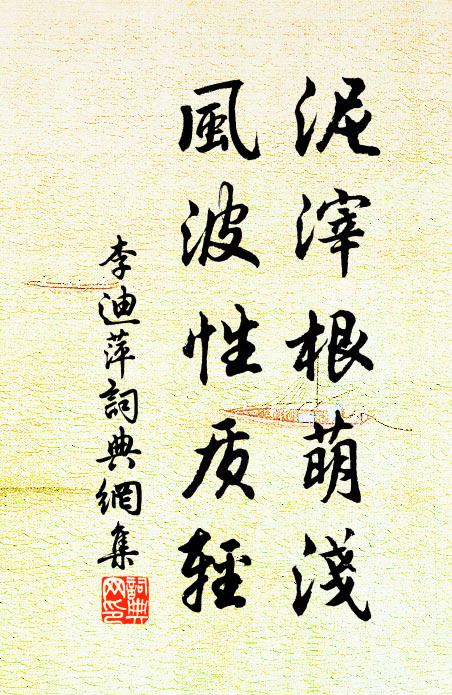 泥滓根萌淺
風波性质輕
李迪萍詞典網集
詞典网印